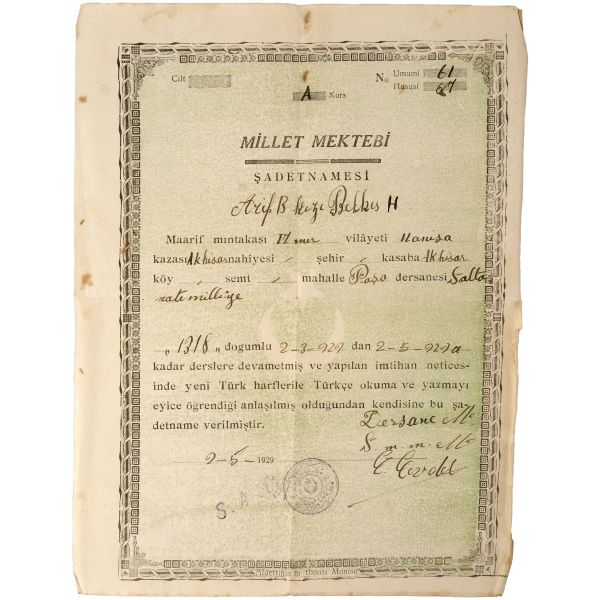 Cilt No Umumî 61
Hususî 67
A Kurs
MİLLET MEKTEBİ
ŞADETNAMESİ
Arif B kızı Belkıs H
Maarif mıntakası İzmir vilâyeti Manisa
kazası Akhisar nahiyesi „ şehir „ kasaba Akhisar
köy „ semt „ mahalle Paşa dersanesi Salta
natı milliye
„ 1318 „ dogumlu 2-3-929 dan 2-5-929 a
kadar derslere devametmiş ve yapılan imtihan netices-
inde yeni Türk harflerile Türkçe okuma ve yazmayı
eyice öğrendiği anlaşılmış olduğundan kendisine bu şa-
detname verilmiştir.
Dersane M.
2-5-1929
S. A.
Manisa